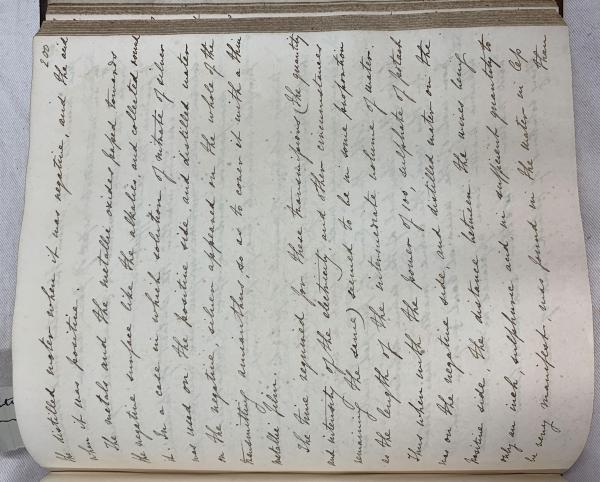 200
the distilled water when it was negative, and the acid
when it was positive.
The metals and the metallic oxides passed towards
the negative surface like the alkalies and collected round
it. In a case in which solution of nitrate of silver
was used on the positive side and distilled water
on the negative, silver appeared on the whole of the
transmitting amianthus so as to cover it with a thin
metallic film.
The time required for these transmissions (the quantity
and intensity of the electricity, and other circumstances
remaining the same) seemed to be in some proportion
as the length of the intermediate volume of water.
Thus when with the power of 100, sulphate of potash
was on the negative side, and distilled water on the
positive side, the distance between the wires being
only an inch, sulphuric acid, in sufficient quantity to
be very manifest, was found in the water in less
than